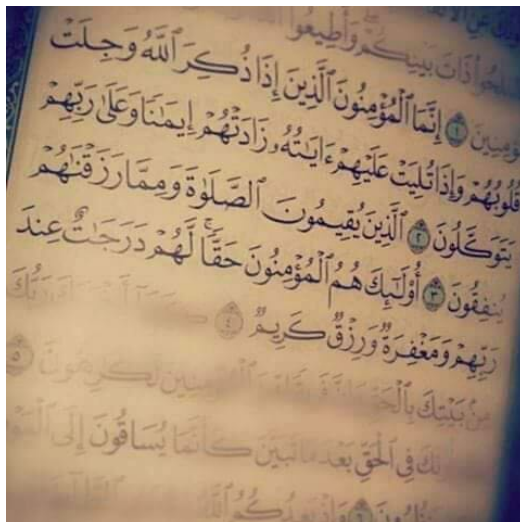 ذَاتَ بَيْنِكُمْ وَأَطِيعُوا
۝١ إِنَّمَا ٱلْمُؤْمِنُونَ ٱلَّذِينَ إِذَا ذُكِرَ ٱللَّهُ وَجِلَتْ
قُلُوبُهُمْ وَإِذَا تُلِيَتْ عَلَيْهِمْ ءَايَـٰتُهُۥ زَادَتْهُمْ إِيمَـٰنًا وَعَلَىٰ رَبِّهِمْ
يَتَوَكَّلُونَ ۝٢ ٱلَّذِينَ يُقِيمُونَ ٱلصَّلَوٰةَ وَمِمَّا رَزَقْنَـٰهُمْ
يُنفِقُونَ ۝٣ أُو۟لَـٰٓئِكَ هُمُ ٱلْمُؤْمِنُونَ حَقًّا ۚ لَّهُمْ دَرَجَـٰتٌ عِندَ
رَبِّهِمْ وَمَغْفِرَةٌ وَرِزْقٌ كَرِيمٌ ۝٤
مِنۢ بَيْتِكَ لَكَـٰرِهُونَ ۝٥
فِى ٱلْحَقِّ بَعْدَ مَا تَبَيَّنَ كَأَنَّمَا يُسَاقُونَ إِلَى